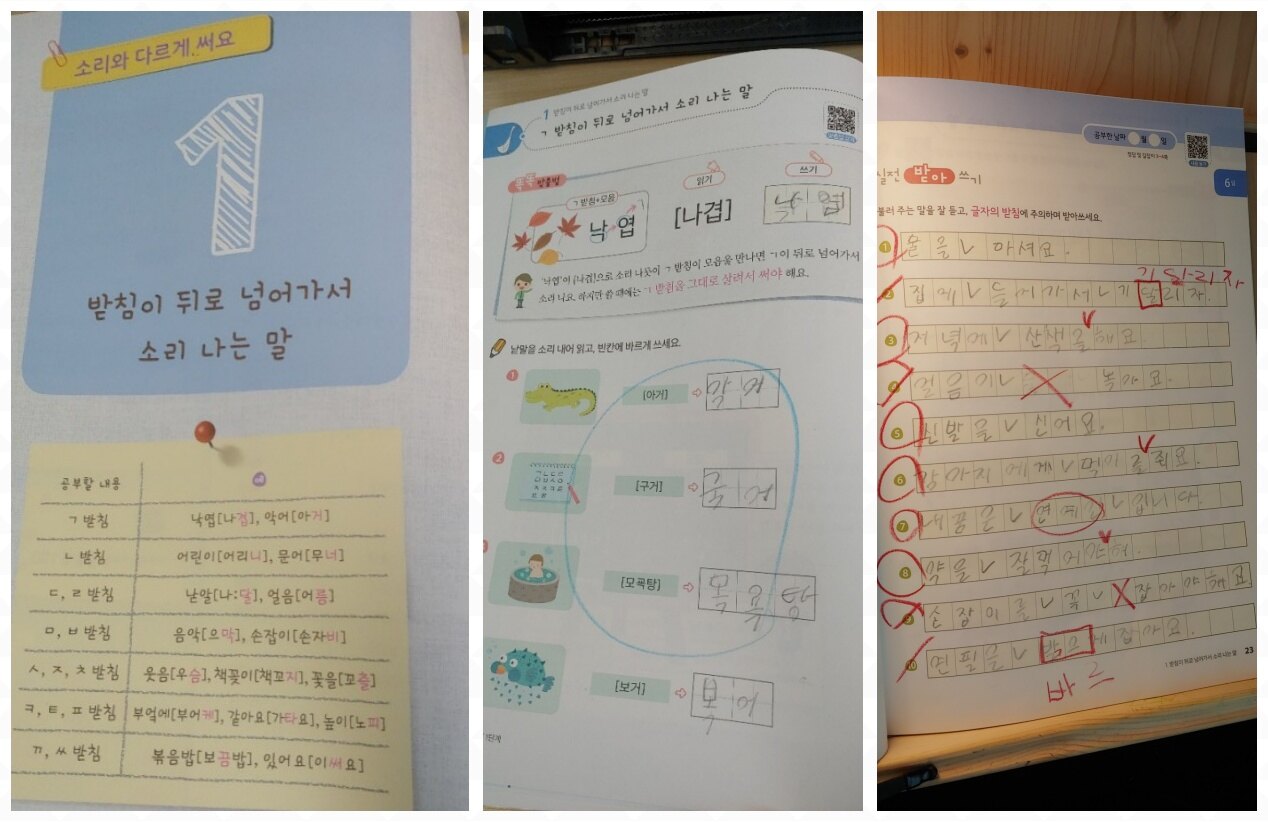 소리와 다르게 써요
1
받침이 뒤로 넘어가서
소리 나는 말
공부할 내용 예
ㄱ 받침 낙엽[나겹], 악어[아거]
ㄴ 받침 어린이[어리니], 문어[무너]
ㄷ, ㄹ 받침 낟알[나:달], 얼음[어름]
ㅁ, ㅂ 받침 음악[으막], 손잡이[손자비]
ㅅ, ㅈ, ㅊ 받침 웃음[우슴], 책꽂이[책꼬지], 꽃을[꼬츨]
ㅋ, ㅌ, ㅍ 받침 부엌에[부어케], 같아요[가타요], 높이[노피]
ㄲ, ㅆ 받침 볶음밥[보끔밥], 있어요[이써요]
1 받침이 뒤로 넘어가서 소리 나는 말
ㄱ 받침이 뒤로 넘어가서 소리 나는 말
똑똑 맞춤법
ㄱ 받침+모음 읽기 쓰기
낙엽 [나겹] 낙엽
'낙엽'이 [나겹]으로 소리 나듯이 ㄱ 받침이 모음을 만나면 ㄱ이 뒤로 넘어가서
소리 나요. 하지만 쓸 때에는 ㄱ 받침을 그대로 살려서 써야 해요.
낱말을 소리 내어 읽고, 빈칸에 바르게 쓰세요.
1 [아거]
2 [구거] 국어
[모곡탕] 목욕탕
[보거] 복어
공부한 날짜 월 일
실전 받아쓰기
6일
불러 주는 말을 잘 듣고, 글자의 받침에 주의하며 받아쓰세요.
1
기 달 리 자
2 집에 들어가서 기 달리자.
3 저녁에 산책을 해요.
4 얼음이 녹아요.
5 신발을 신어요.
6 강아지에게 먹이를 줘요.
7 내 꿈은
8 약을
9 손잡이를 꼭 잡아야 해요
10 연필을 잡아요.
바르
1 받침이 뒤로 넘어가서 소리 나는 말 23